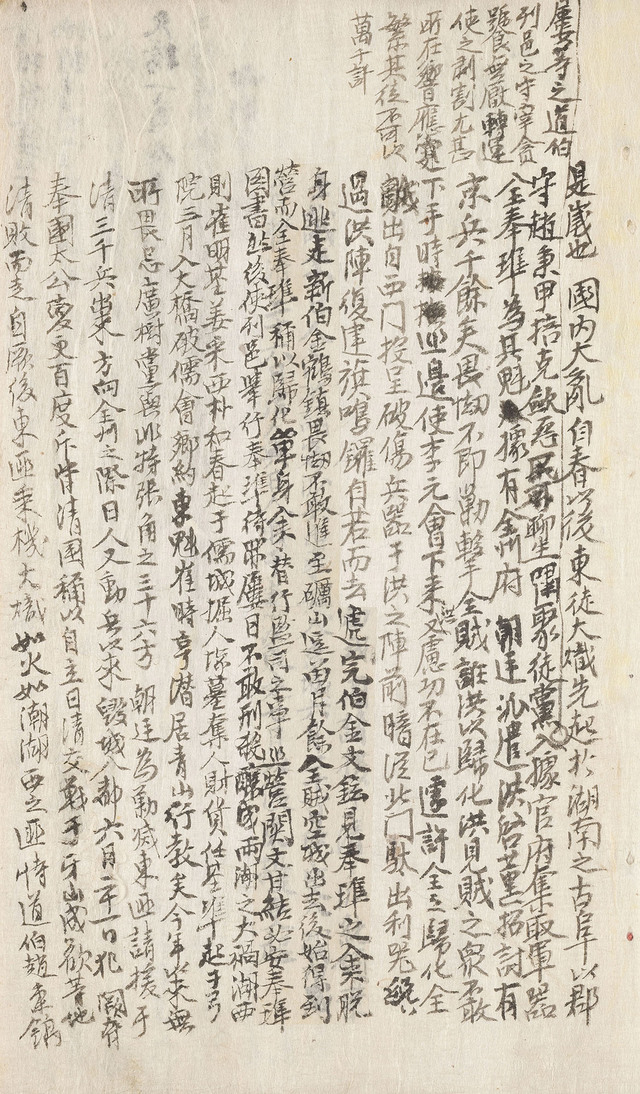 屢等之道伯
列邑之守宰貪
饕無厭轉運
使之剥割尤甚
所在響應寔
繁其徒不可以
萬千計
是歲也國内大亂自春以後東徒大熾先起於湖南之古阜以郡
守趙秉甲掊克歛怨民不聊生閙聚徒黨入據官府奪取軍器
全奉琫為其魁據有全州府朝廷派遣洪啓薰招討有
京兵千餘夫畏㥘不即勦擊全賊誑洪以歸化洪見賊之衆不敢
下手時巡邊使李元會下來洪慮功不在已遽許全之歸化全
賊出自西門投呈破傷兵器于洪之陣前暗從北門馱出利器
過洪陣復建旗鳴鑼自若而去完伯金文鉉見奉琫之入來脱
身逃走新伯金鶴鎮畏㥘不敢進至礪山逗留月餘全賊空城出去後始得到
營而全奉琫稱以歸化單身入來替行監司之事巡營關文甘結必安奉琫
圖書然後使列邑舉行奉琫待罪屢日不敢刑殺釀成兩湖之大禍湖西
則崔明基姜采西朴和春起于儒城掘人塚墓奪人財貨任基準起于弓
院三月入大橋破儒會鄉約東魁崔時亨潜居青山行教矣今年以來無
所畏忌廣樹黨與此特張角之三十六方朝廷為勦滅東匪請援于
清三千兵出東方向全州之際日人又動兵以來毁城入都六月二十一日犯闕
奉國太公變更百度斥背清國稱以自主日清交戰于牙山成歡等地
清敗而走自厥後東匪乘機大熾如火如潮湖西之匪恃道伯趙秉鎬